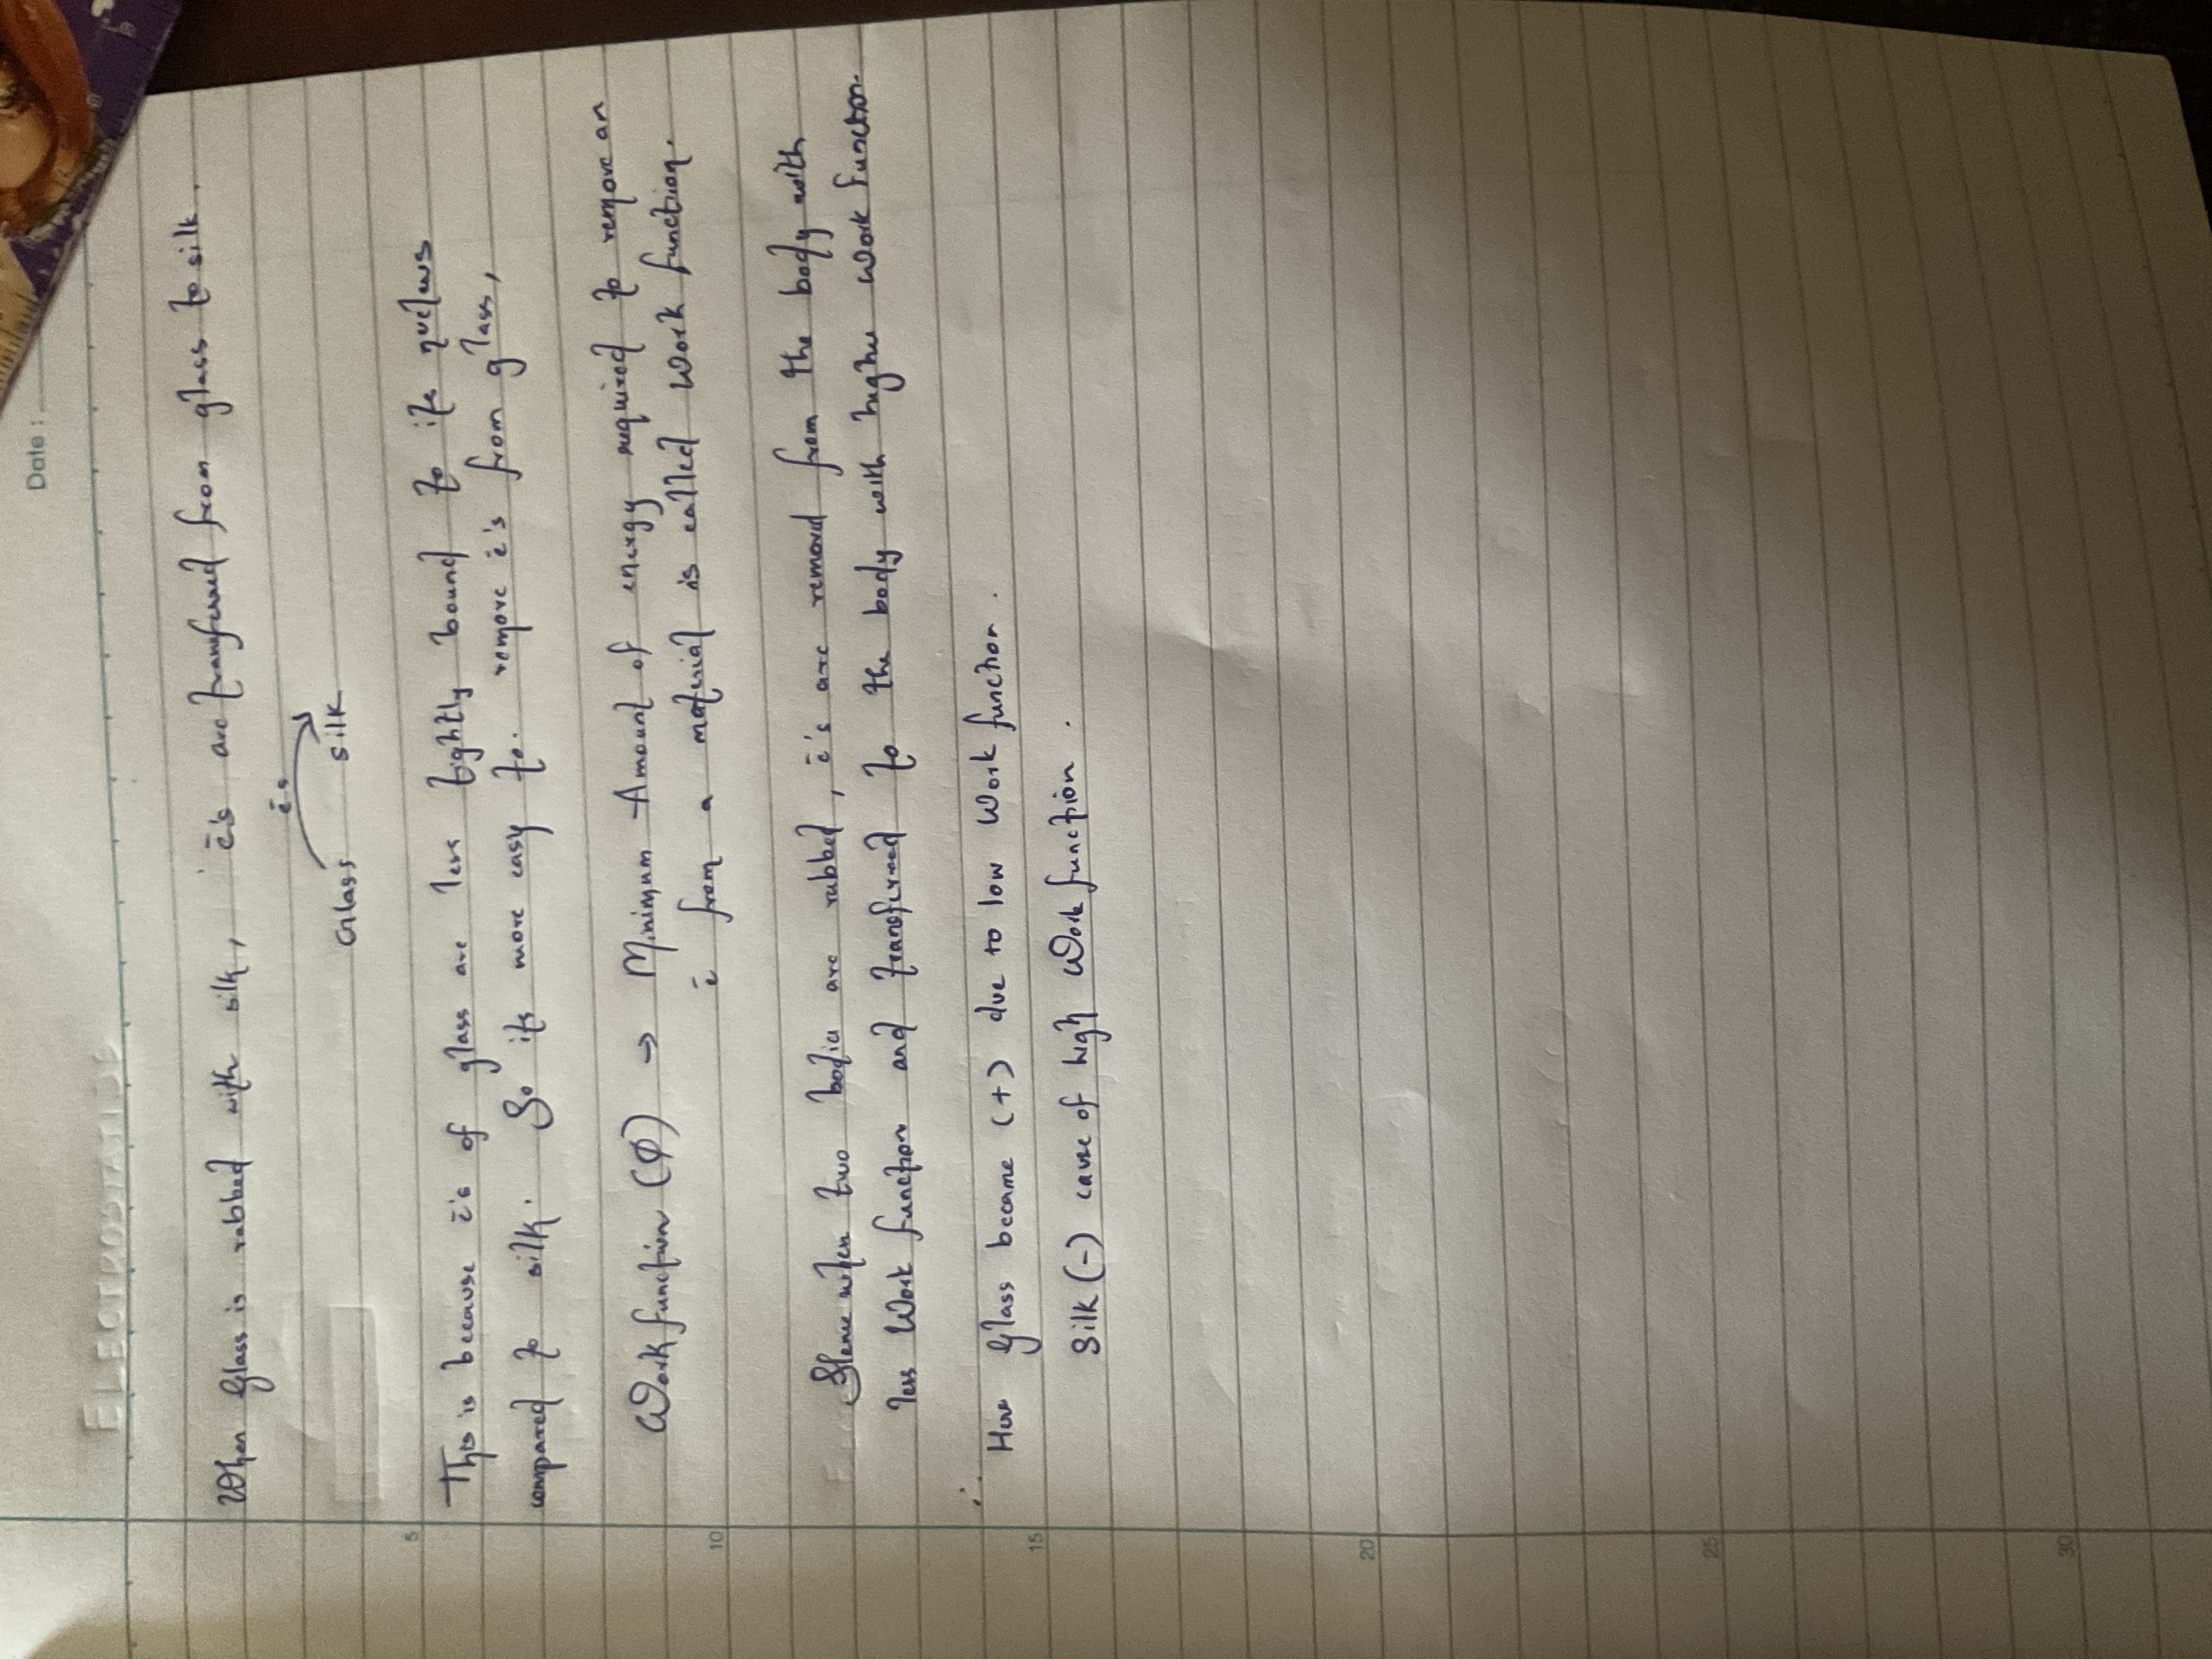 Date :
ELECTROSTATICS
When Glass is rubbed with silk, ē's are transferred from glass to silk.
ē's
Glass silk
This is because ē's of glass are less tightly bound to its
5
compared to silk. So its more easy to. remove ē's from glass,
Work function (Φ) → Minimum Amount of energy required to remove an
ē from a material is called Work function.
10
Hence when two bodies are rubbed, ē's are removed from the body with
less Work function and transferred to the body with higher Work function.
∴ Here Glass became (+) due to low Work function.
15
Silk (-) cause of high Work function.
20
25
30